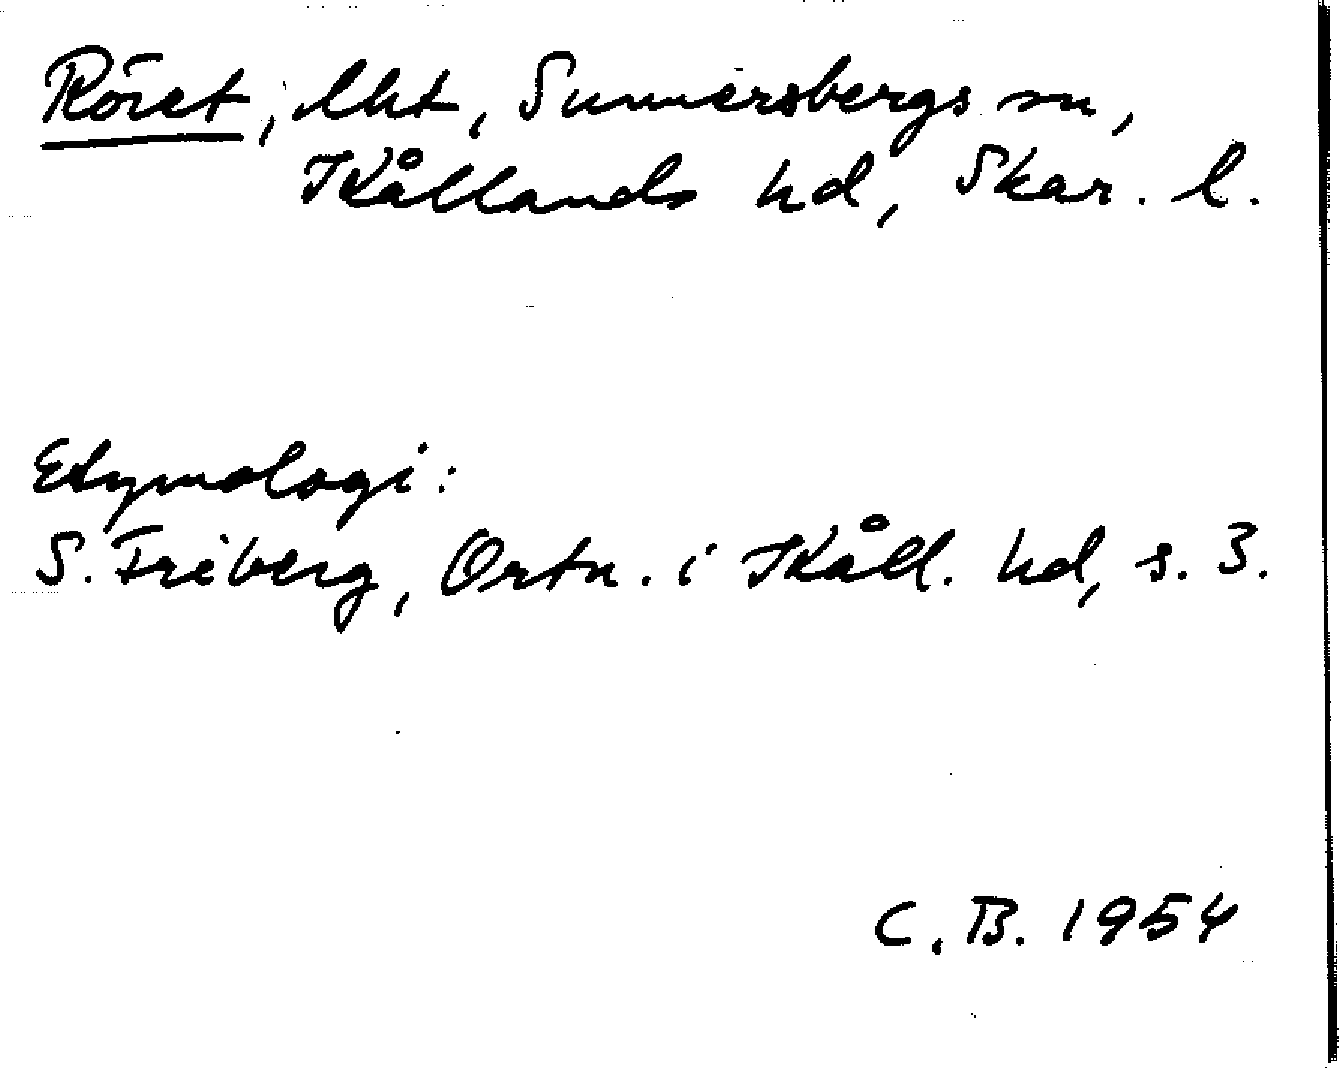 Röret, lht, Sunnersbergs sn,
Kållands hd, Skar. l.
Etymologi:
S. Friberg, Ortn. i Kåll. hd, s. 3.
C.B. 1954